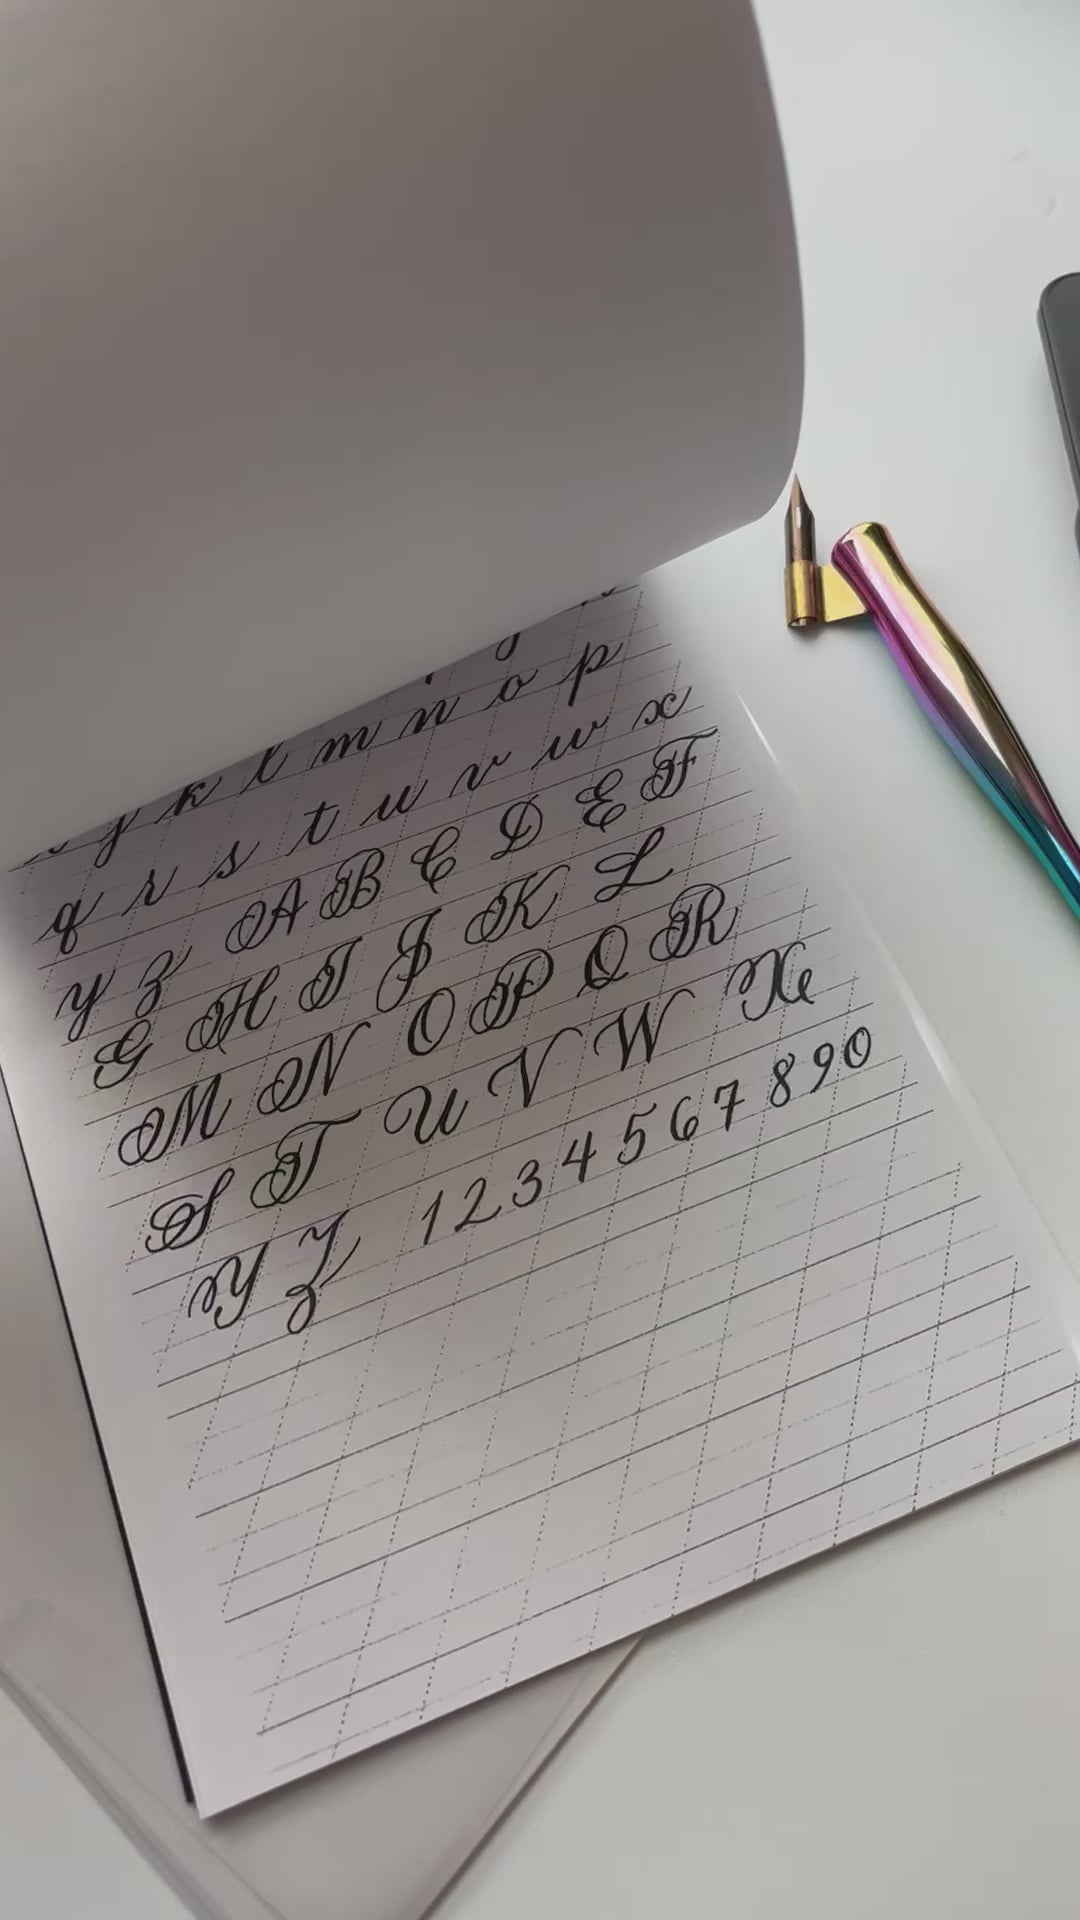 j k l m n o p
q r s t u v w x
y z A B C D E F
G H I J K L
M N O P Q R
S T U V W X
Y Z 1 2 3 4 5 6 7 8 9 0